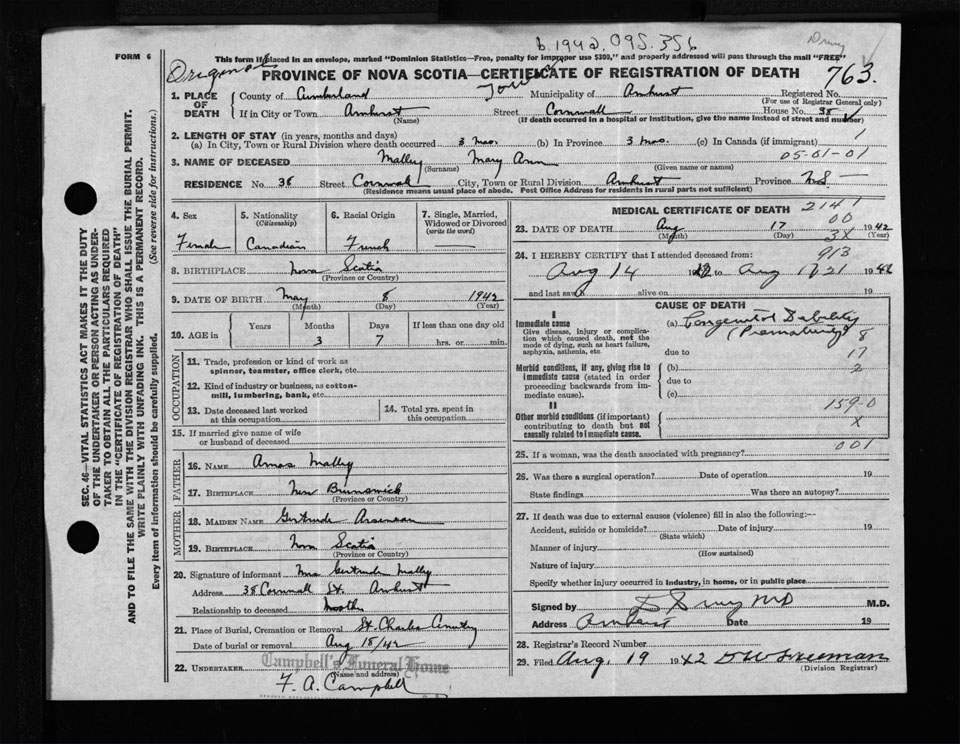 b. 1942. 095.356
Drury
FORM 6
This form if placed in an envelope, marked "Dominion Statistics—Free, penalty for improper use $300," and properly addressed will pass through the mail "FREE"
Original
PROVINCE OF NOVA SCOTIA—CERTIFICATE OF REGISTRATION OF DEATH
763.
1. PLACE OF DEATH
County of Cumberland Town Municipality of Amherst Registered No.
(For use of Registrar General only)
If in City or Town Amherst Street Cornwall House No. 38
(Name) (If death occurred in a hospital or institution, give the name instead of street and number)
2. LENGTH OF STAY (in years, months and days)
(a) In City, Town or Rural Division where death occurred 3 mos. (b) In Province 3 mos. (c) In Canada (if immigrant) 1
05-01-01
3. NAME OF DECEASED Malley Mary Ann
(Surname) (Given name or names)
RESIDENCE No. 38 Street Cornwall City, Town or Rural Division Amherst Province N.S.
(Residence means usual place of abode. Post Office Address for residents in rural parts not sufficient)
SEC. 46—VITAL STATISTICS ACT MAKES IT THE DUTY
OF THE UNDERTAKER OR PERSON ACTING AS UNDER-
TAKER TO OBTAIN ALL THE PARTICULARS REQUIRED
IN THE "CERTIFICATE OF REGISTRATION OF DEATH"
AND TO FILE THE SAME WITH THE DIVISION REGISTRAR WHO SHALL ISSUE THE BURIAL PERMIT.
WRITE PLAINLY WITH UNFADING INK. THIS IS A PERMANENT RECORD.
Every item of information should be carefully supplied. (See reverse side for instructions.)
4. Sex
Female
5. Nationality
(Citizenship)
Canadian
6. Racial Origin
French
7. Single, Married,
Widowed or Divorced
(write the word)
8. BIRTHPLACE Nova Scotia
(Province or Country)
9. DATE OF BIRTH May 8 1942
(Month) (Day) (Year)
10. AGE in
Years Months Days If less than one day old
3 7 hrs. or min.
OCCUPATION
11. Trade, profession or kind of work as
spinner, teamster, office clerk, etc.
12. Kind of industry or business, as cotton-
mill, lumbering, bank, etc.
13. Date deceased last worked
at this occupation
14. Total yrs. spent in
this occupation
15. If married give name of wife
or husband of deceased
FATHER
16. NAME Amos Malley
17. BIRTHPLACE New Brunswick
(Province or Country)
MOTHER
18. MAIDEN NAME Gertrude Arseneau
19. BIRTHPLACE Nova Scotia
(Province or Country)
20. Signature of informant Mrs Gertrude Malley
Address 38 Cornwall St. Amherst
Relationship to deceased Mother
21. Place of Burial, Cremation or Removal St. Charles Cemetry
Date of burial or removal Aug 18/42
Campbell's Funeral Home
22. UNDERTAKER
(Name and address)
F. A. Campbell
MEDICAL CERTIFICATE OF DEATH 2141
00
23. DATE OF DEATH Aug 17 1942
(Month) (Day) (Year)
3X
24. I HEREBY CERTIFY that I attended deceased from: 913
Aug 14 1942 to Aug 17 21 1942
and last saw h alive on 19
CAUSE OF DEATH
I
Immediate cause
Give disease, injury or complica-
tion which caused death, not the
mode of dying, such as heart failure,
asphyxia, asthenia, etc.
(a) Congenital Debility
(Prematurity) 8
due to 17
Morbid conditions, if any, giving rise to
immediate cause (stated in order
proceeding backwards from im-
mediate cause).
(b) 2
due to
(c)
159-0
II
Other morbid conditions (if important)
contributing to death but not
causally related to immediate cause.
X
001
25. If a woman, was the death associated with pregnancy?
26. Was there a surgical operation? Date of operation 19
State findings Was there an autopsy?
27. If death was due to external causes (violence) fill in also the following:—
Accident, suicide or homicide? Date of injury 19
(State which)
Manner of injury
(How sustained)
Nature of injury
Specify whether injury occurred in industry, in home, or in public place
Signed by D Drury MD M.D.
Address Amherst Date 19
28. Registrar's Record Number
29. Filed Aug. 19 1942 D W Freeman
(Division Registrar)